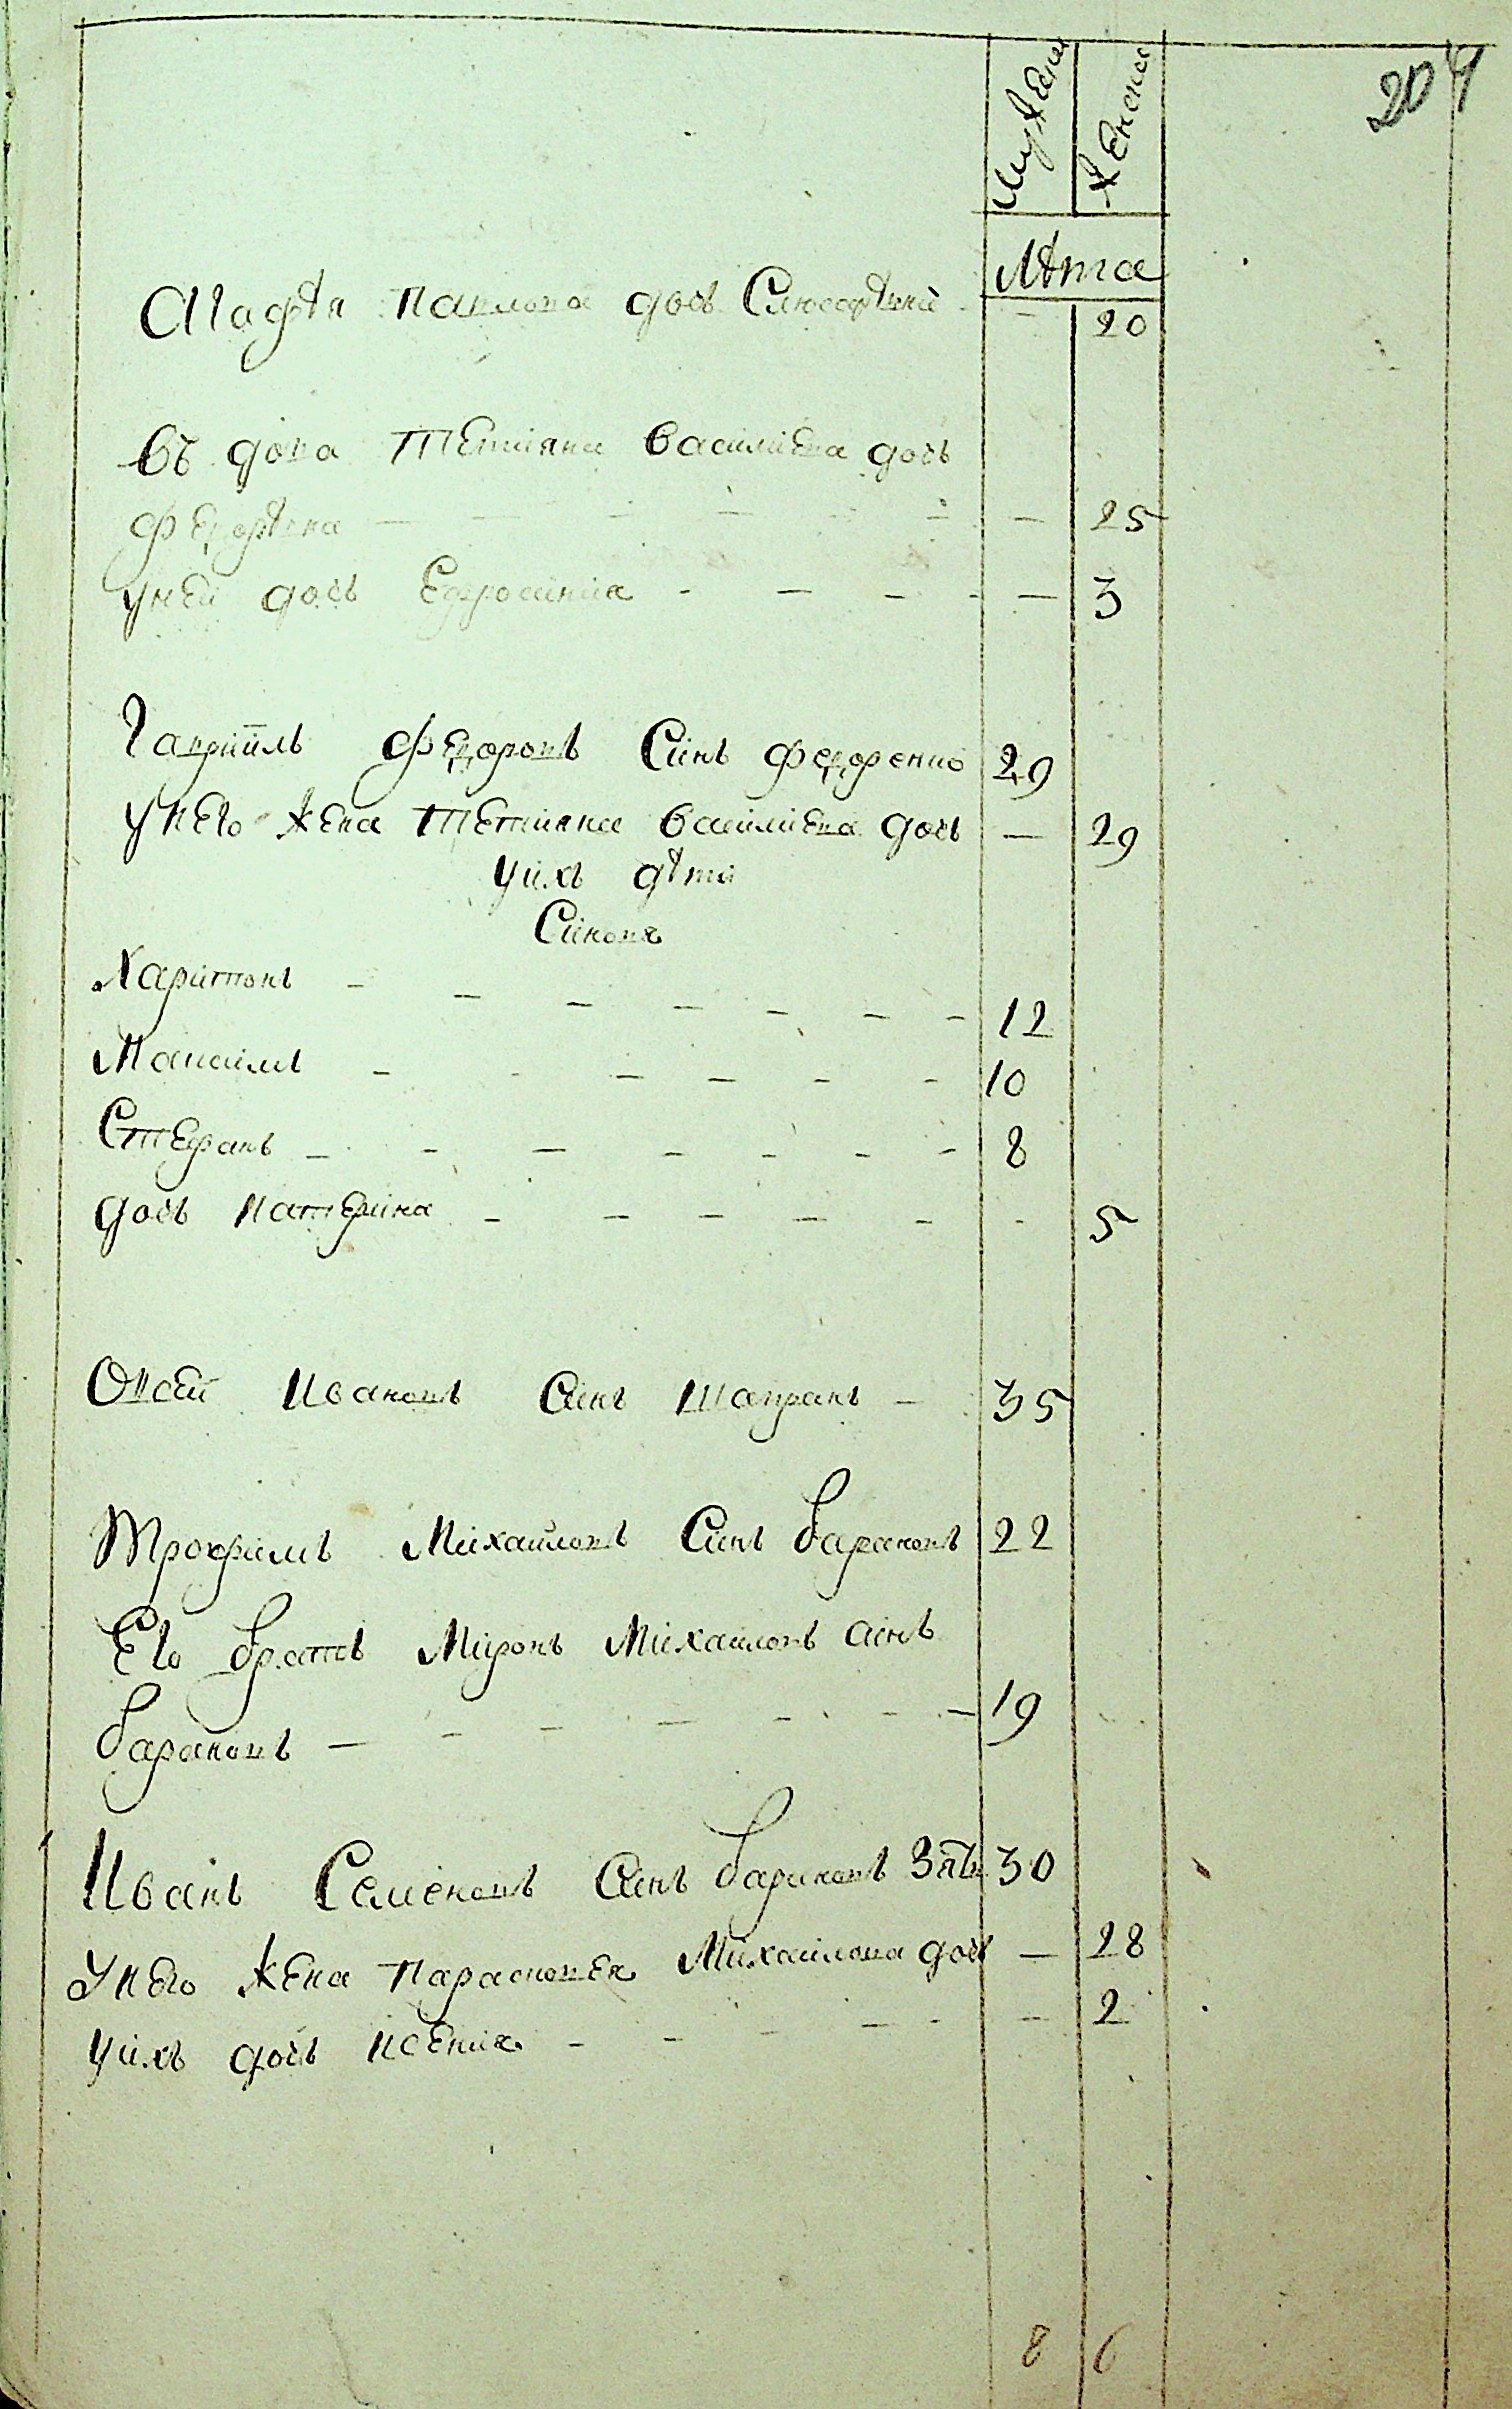 204
Мужеска Женска
Лѣта
Мадѣя Павлова дочь Слюсарѣвна - 20
Въдова Тетіяна Василіева дочь
Федорѣвна - - - - - - - 25
унеи дочь Ефросинія - - - - - 3
Гавріилъ Федоровъ Синъ Федоренко 29
Унего жена Тетіяна Василіева дочь — 29
Уихъ дѣти
Синовя
Харитонъ - - - - - - - 12
Максимъ - - - - - - 10
Стефанъ - - - - - - - 8
дочь Катерина - - - - - - 5
Овсеи Ивановъ Синъ Шапранъ - 35
Трофимъ Михаиловъ Синъ барановъ 22
Его братъ Миронъ Михаиловъ синъ
барановъ - - - - - - - 19
Иванъ Семеновъ Синъ барановъ Зять 30
Унего жена Парасковея Михаилова дочь — 28
Уихъ дочь Ксения - - - - - - 2
8 6